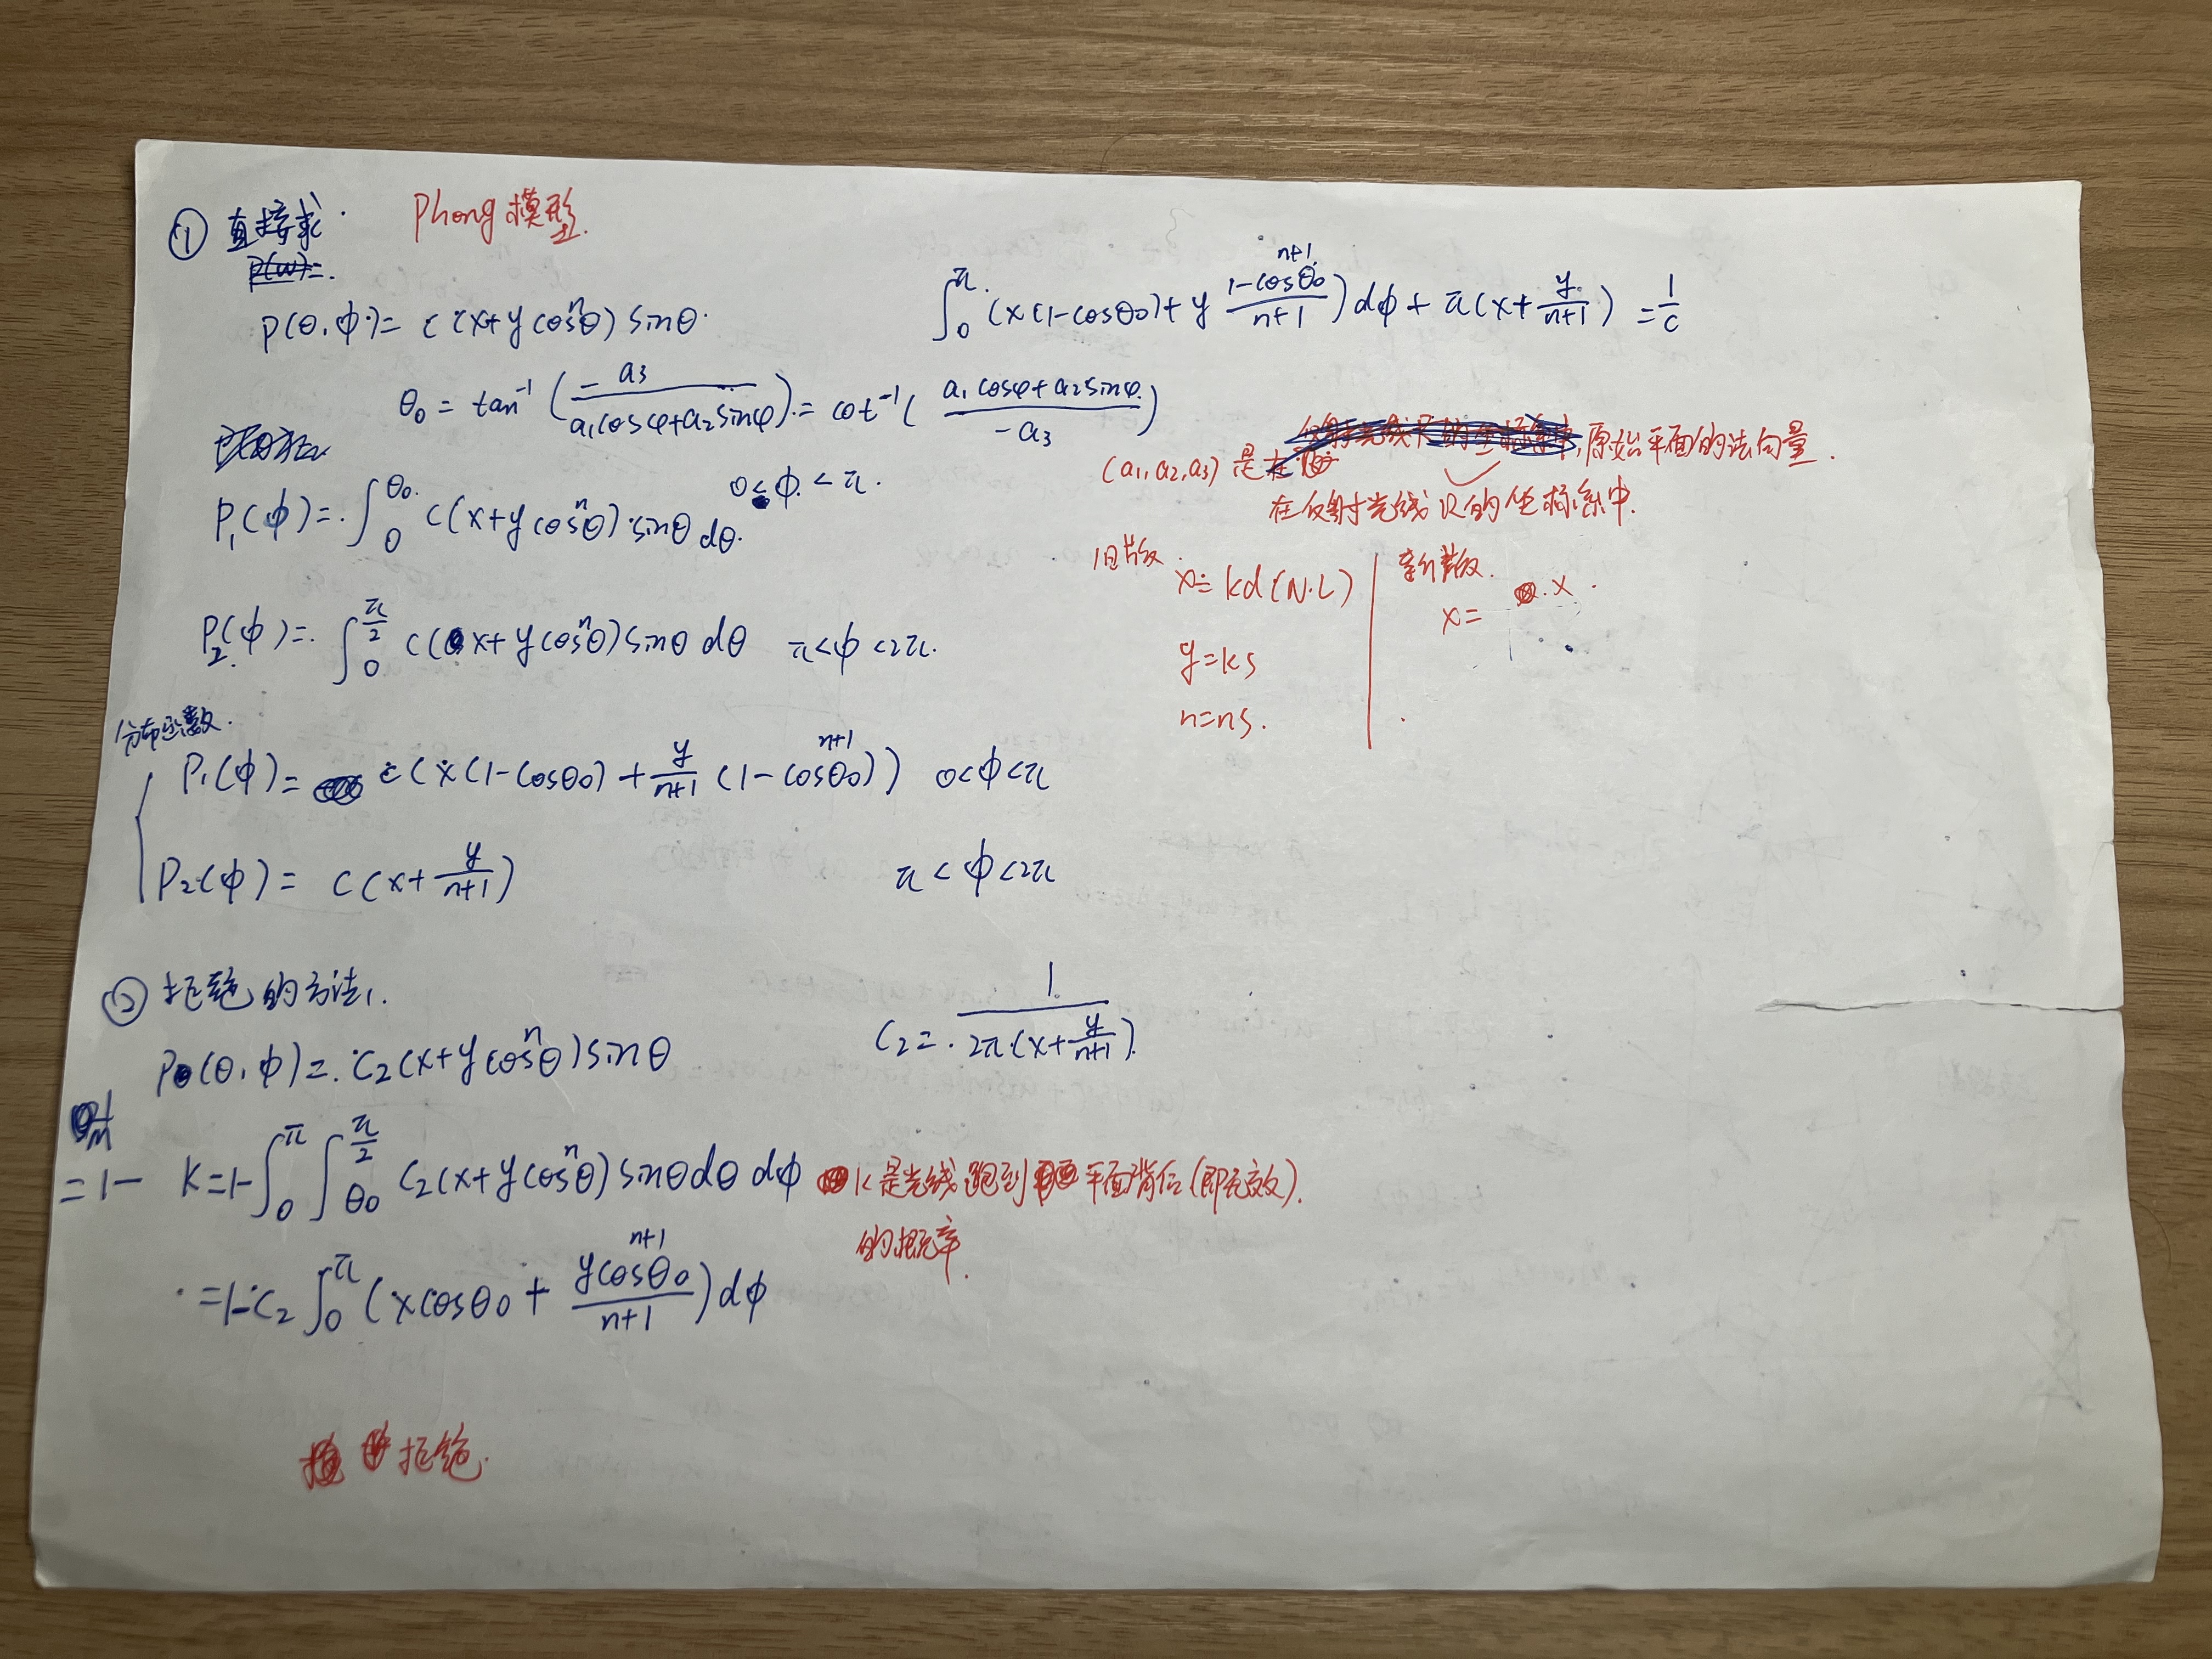 ① 直接求. Phong模型.
P(θ,φ)= c(x+ycosⁿθ)sinθ.
∫₀^π (x(1-cosθ₀)+y (1-cosⁿ⁺¹θ₀)/(n+1))dφ + π(x+y/(n+1)) = 1/c
θ₀ = tan⁻¹(-a₃/(a₁cosφ+a₂sinφ)) = cot⁻¹((a₁cosφ+a₂sinφ)/-a₃)
(a₁,a₂,a₃) 是 原始平面的法向量.
在反射光线R的坐标系中.
P₁(φ)= ∫₀^θ₀ c(x+ycosⁿθ)·sinθdθ. 0<φ<π.
旧版. x= kd(N·L)
y=ks
n=ns.
新版.
x= x.
P₂(φ)= ∫₀^(π/2) c(x+ycosⁿθ)sinθdθ π<φ<2π.
分布函数.
P₁(φ)= c(x(1-cosθ₀)+y/(n+1)(1-cosⁿ⁺¹θ₀)) 0<φ<π
P₂(φ)= c(x+y/(n+1)) π<φ<2π
② 拒绝的方法.
P(θ,φ)= c₂(x+ycosⁿθ)sinθ
c₂= 1/(2π(x+y/(n+1)))
=1- K=1-∫₀^π∫_θ₀^(π/2) c₂(x+ycosⁿθ)sinθdθdφ
K是光线跑到平面背后(即无效).
的概率.
=1-c₂∫₀^π(xcosθ₀+ycosⁿ⁺¹θ₀/(n+1))dφ
拒绝.